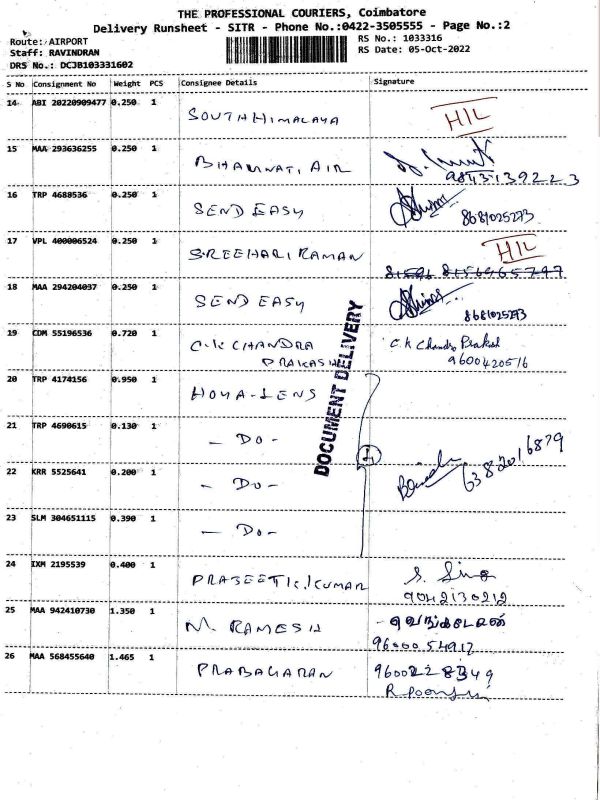 THE PROFESSIONAL COURIERS, Coimbatore
Delivery Runsheet - SITR - Phone No.:0422-3505555 - Page No.:2
Route: AIRPORT RS No.: 1033316
Staff: RAVINDRAN RS Date: 05-Oct-2022
DRS No.: DCJB103331602
S No Consignment No Weight PCS Consignee Details Signature
14 ABI 20220909477 0.250 1 SOUTH HIMALAYA H/L
15 MAA 293636255 0.250 1 BHARWATI, AIR
9843139223
16 TRP 4680536 0.250 1 SEND EASY 8681025273
17 VPL 400006524 0.250 1 SREEHARI RAMAN H/L
8156965797
18 MAA 294204037 0.250 1 SEND EASY 8681025273
19 CDM 55196536 0.720 1 C.K CHANDRA C.K Chandra Prakash
PRAKASH 9600420516
DOCUMENT DELIVERY
20 TRP 4174156 0.950 1 HOYA-LENS
21 TRP 4690615 0.130 1 - DO -
22 KRR 5525641 0.200 1 - DO - 6382016879
23 SLM 304651115 0.390 1 - DO -
24 IXM 2195539 0.400 1 PRAJEETK.KUMAR
9042130212
25 MAA 942410730 1.350 1 M. RAMESH வெங்கடேஷன்
9600054917
26 MAA 568455640 1.465 1 PRABAGARAN 9600228349